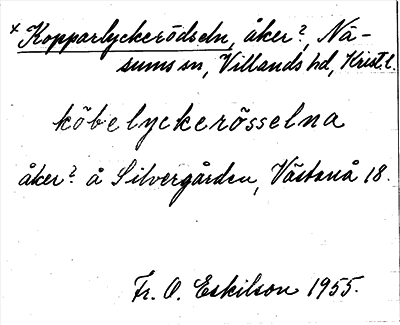 * Kopparlyckerödseln, åker?, Nä-
sums sn, Villands hd, Krist. l.
köbelyckerösselna
åker? å Silvergården, Västanå 18.
Fr. O. Eskilson 1955.